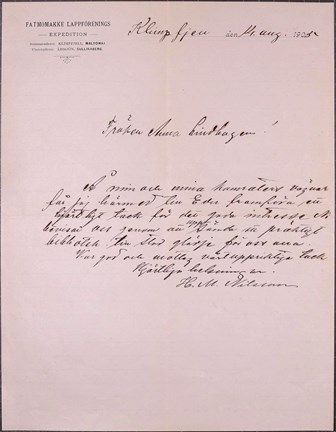 FATMOMAKKE LAPPFÖRENINGS
EXPEDITION
Klimpfjell den 14 aug. 1905
Fröken Anna Lindhagen!
Å min och mina kamraters vägnar
får jag härmed till Eder framföra ett
hjärtligt tack för det goda intresse Ni
bevisat oss genom att sända ett präktigt
bibliotek till stor glädje för oss alla
Var god och mottag vårt uppriktiga tack
Hjärtliga helsningar.
H. M. Nilsson